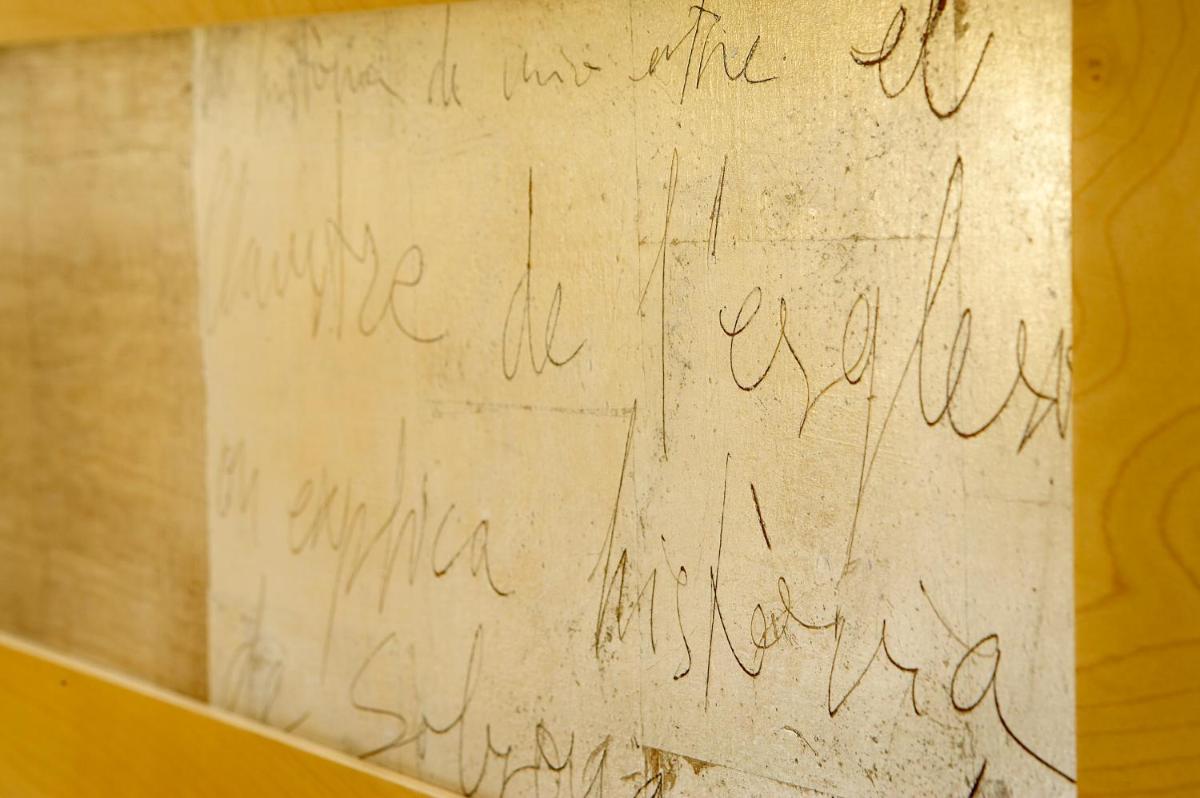 història de entre el
claustre de l'esglesia
on explica història
de Solsona